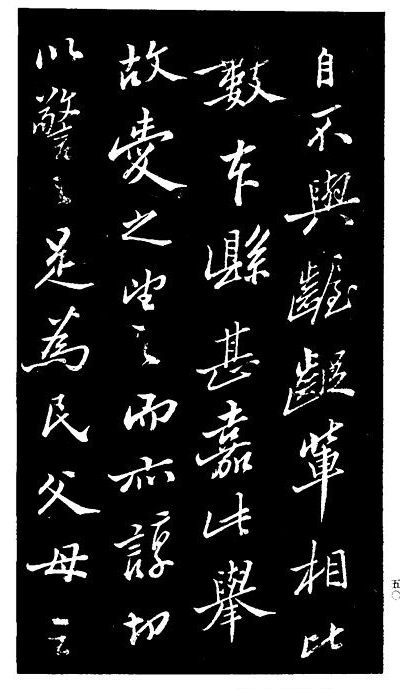 自不與齷齪輩相比
數本縣甚嘉此舉
故愛之望之而亦諄切
以警之是為民父母
五〇